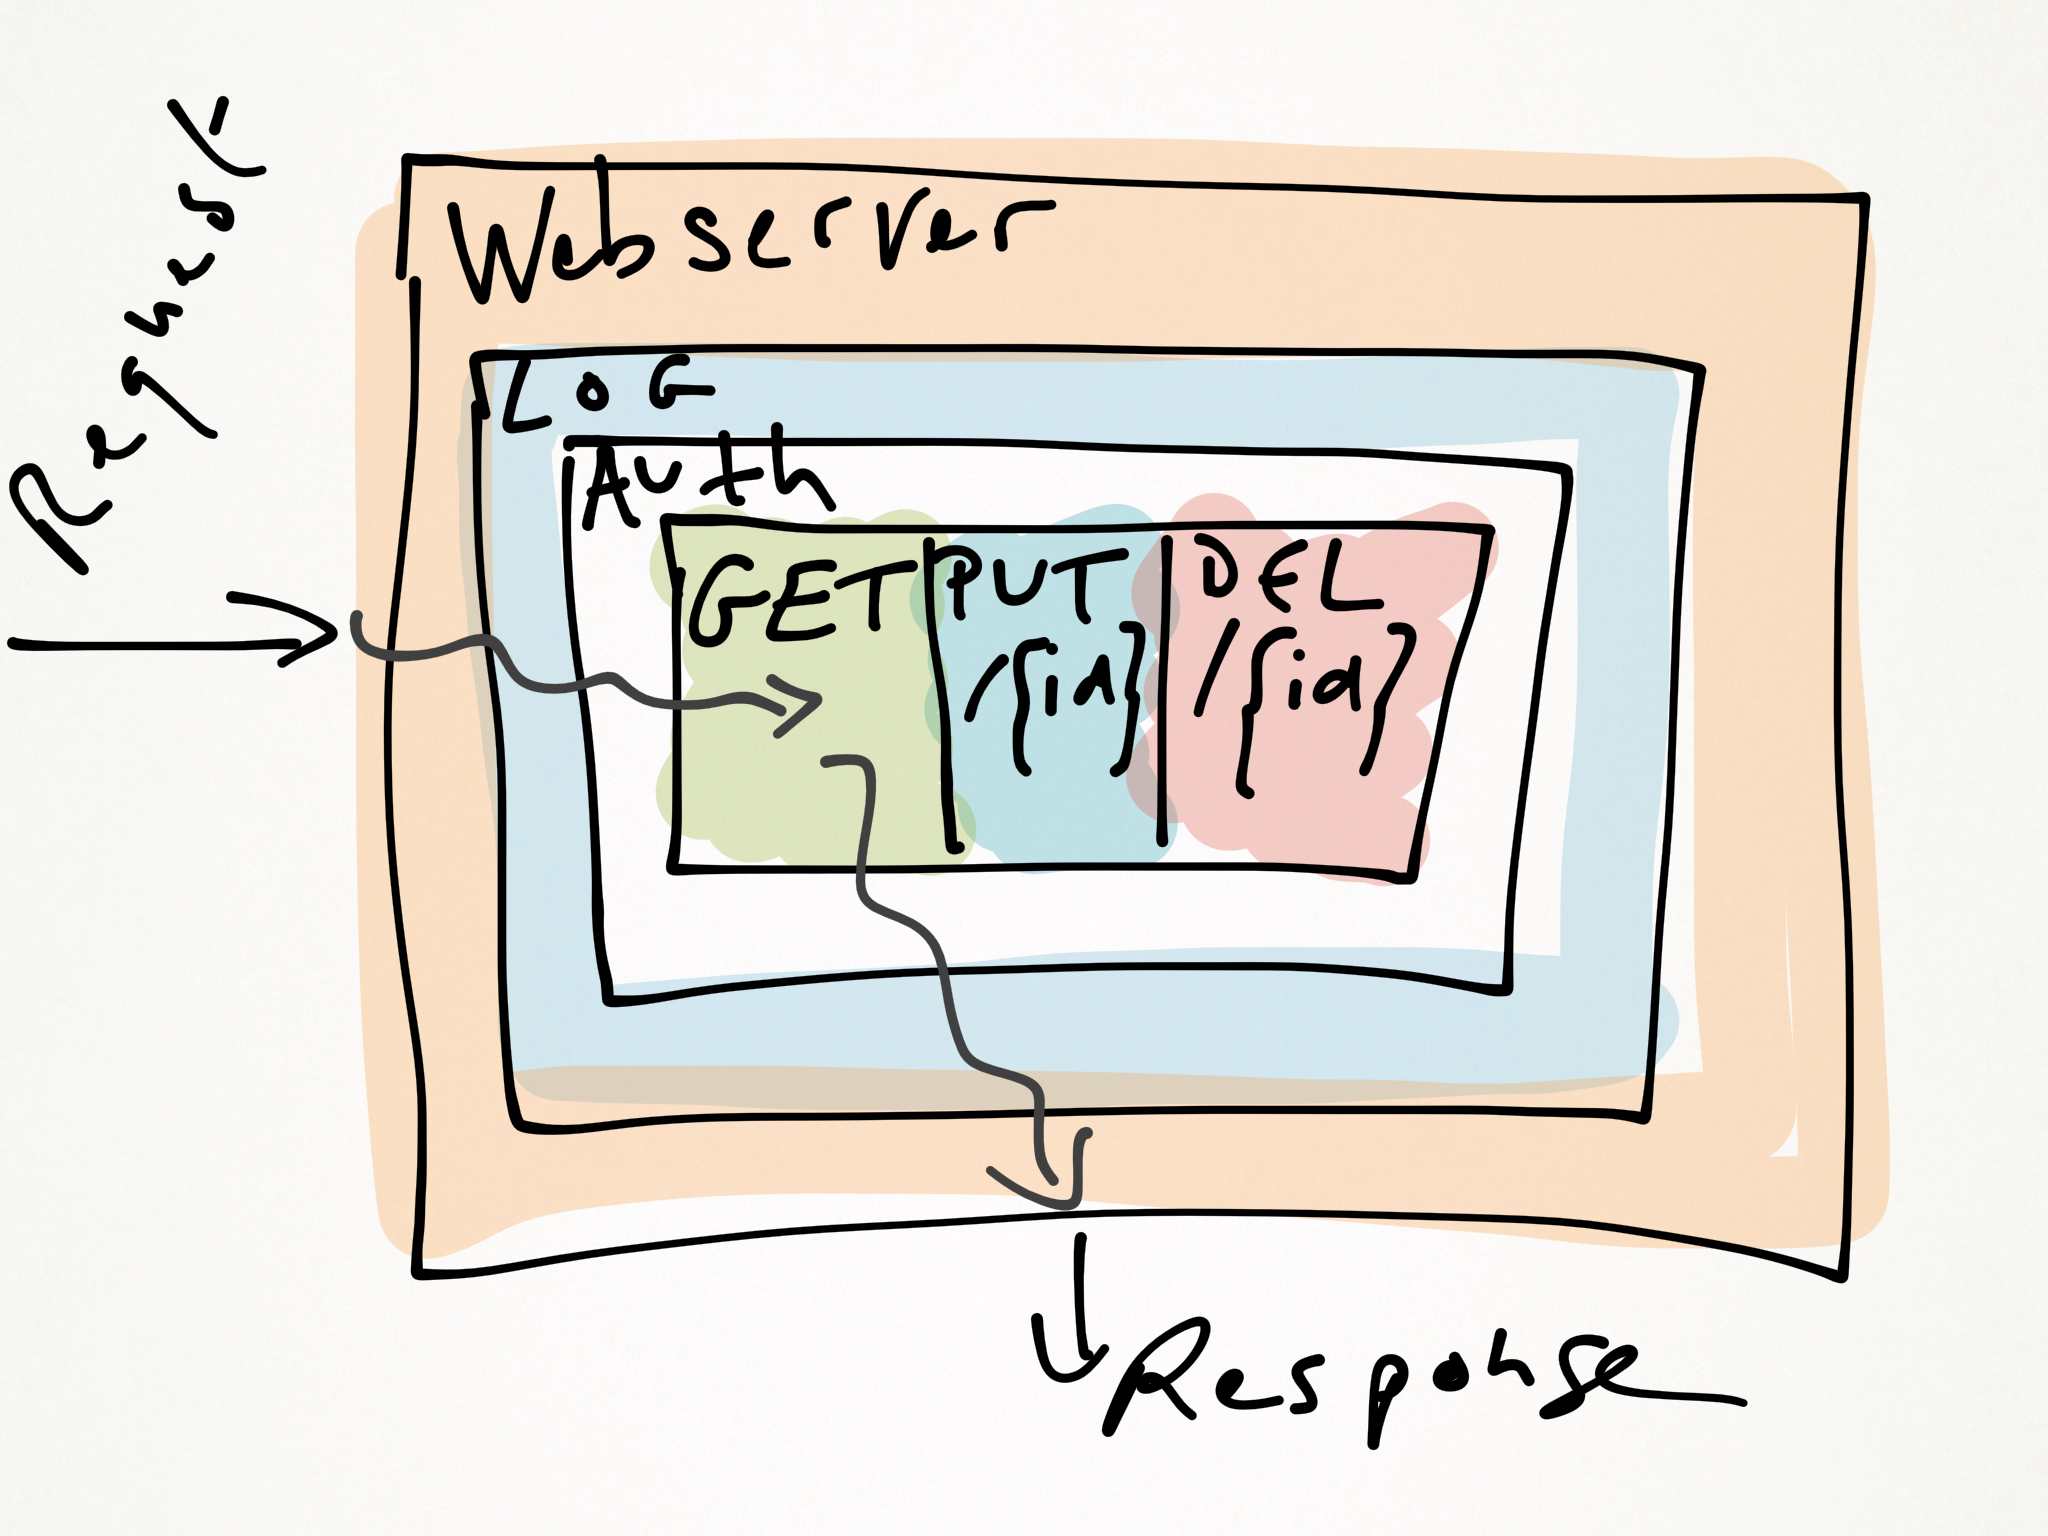 Request
Webserver
LOG
Auth
GET
PUT
/{id}
DEL
/{id}
Response